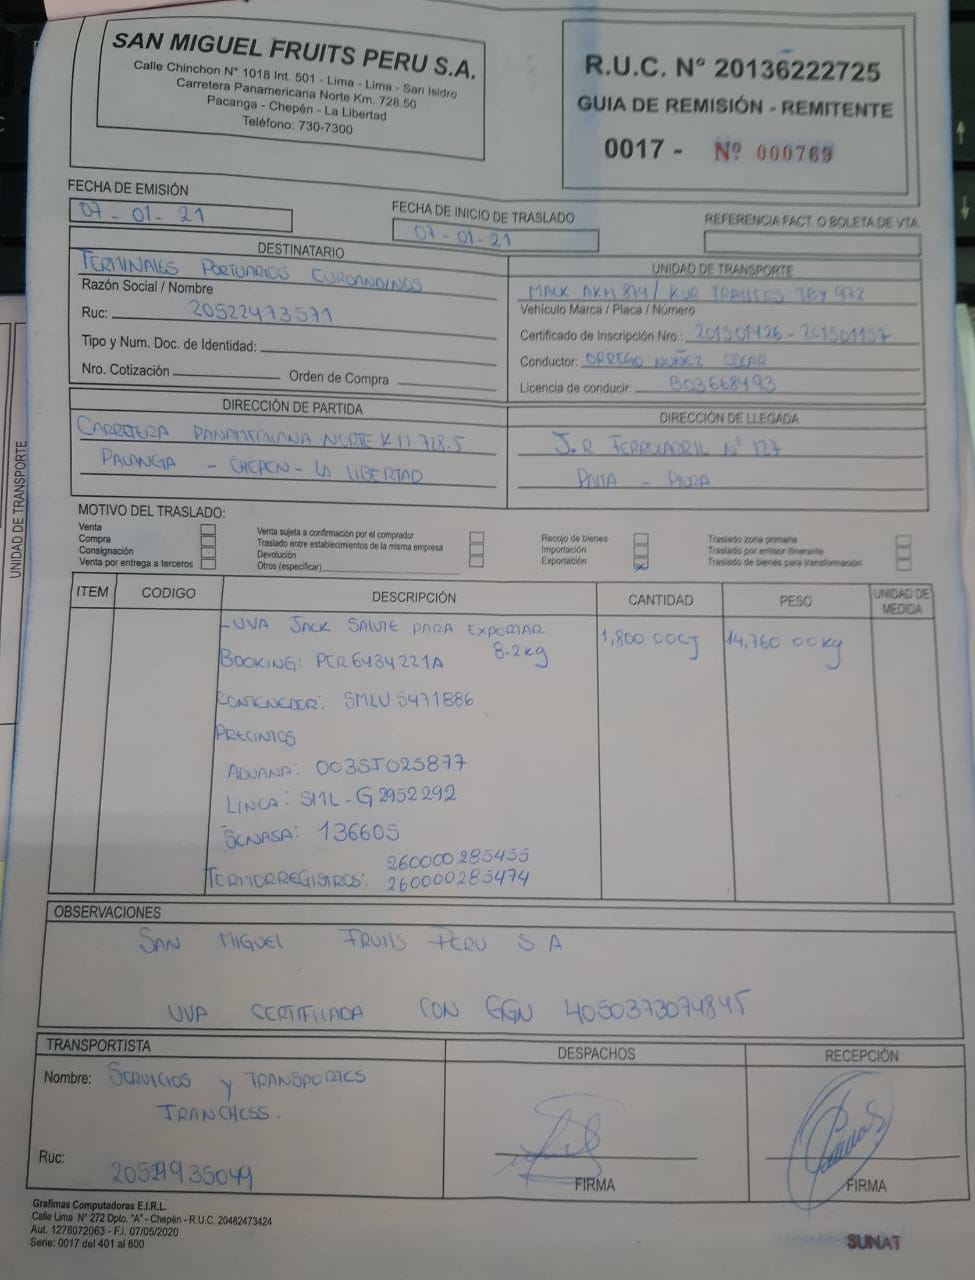 SAN MIGUEL FRUITS PERU S.A.
Calle Chinchon N° 1018 Int. 501 - Lima - Lima - San Isidro
Carretera Panamericana Norte Km. 728.50
Pacanga - Chepén - La Libertad
Teléfono: 730-7300
R.U.C. N° 20136222725
GUIA DE REMISIÓN - REMITENTE
0017 - Nº 000769
FECHA DE EMISIÓN
07-01-21
FECHA DE INICIO DE TRASLADO
07-01-21
REFERENCIA FACT. O BOLETA DE VTA.
DESTINATARIO
TERMINALES PORTUARIOS EUROANDINOS
Razón Social / Nombre
Ruc: 20522473571
Tipo y Num. Doc. de Identidad:
Nro. Cotización Orden de Compra
UNIDAD DE TRANSPORTE
MACK AKH 874 / KUR TRAILERS TBY 972
Vehículo Marca / Placa / Número
Certificado de Inscripción Nro.: 201501426 - 201501157
Conductor: ORREGO NUÑEZ CESAR
Licencia de conducir: B03668493
DIRECCIÓN DE PARTIDA
CARRETERA PANAMERICANA NORTE KM 728.5
PALANGA - CHEPEN - LA LIBERTAD
DIRECCIÓN DE LLEGADA
J.R FERROCARRIL Nº 127
PAITA - PIURA
MOTIVO DEL TRASLADO:
Venta
Compra
Consignación
Venta por entrega a terceros
Venta sujeta a confirmación por el comprador
Traslado entre establecimientos de la misma empresa
Devolución
Otros (especificar)
Recojo de bienes
Importación
Exportación X
Traslado zona primaria
Traslado por emisor itinerante
Traslado de bienes para transformación
ITEM CODIGO DESCRIPCIÓN CANTIDAD PESO UNIDAD DE MEDIDA
-UVA JACK SALUTE PARA EXPORTAR 1,800 00CJ 14,760 00Kg
8.2kg
BOOKING: PER6434221A
CONTENEDOR: SMLU 5471886
PRECINTOS
ADUANA: 003SJ025877
LINEA: SML-G2952292
SENASA: 136605
260000285455
TERMORREGISTROS: 260000285474
OBSERVACIONES
SAN MIGUEL FRUITS PERU S A
UVA CERTIFICADA CON GGN 4050373074845
TRANSPORTISTA
Nombre: SERVICIOS y TRANSPORTES
TRANCHESS.
Ruc:
DESPACHOS
FIRMA
RECEPCIÓN
FIRMA
Grafimas Computadoras E.I.R.L.
Calle Lima N° 272 Dpto. "A" - Chepén - R.U.C. 20482473424
Aut. 1278072063 - F.I. 07/05/2020
Serie: 0017 del 401 al 800
SUNAT
UNIDAD DE TRANSPORTE